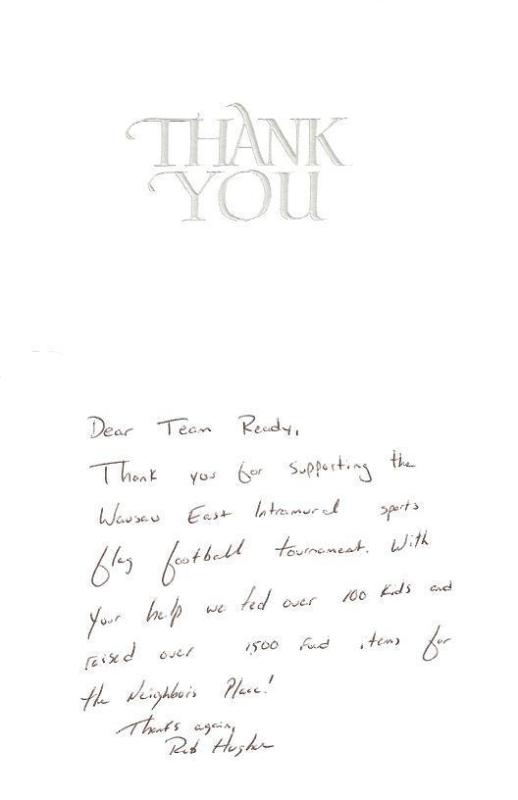 THANK
YOU
Dear Team Ready,
Thank you for supporting the
Wausau East Intramural sports
flag football tournament. With
your help we fed over 100 kids and
raised over 1500 food items for
the Neighbors Place!
Thanks again,
Rob Hughes